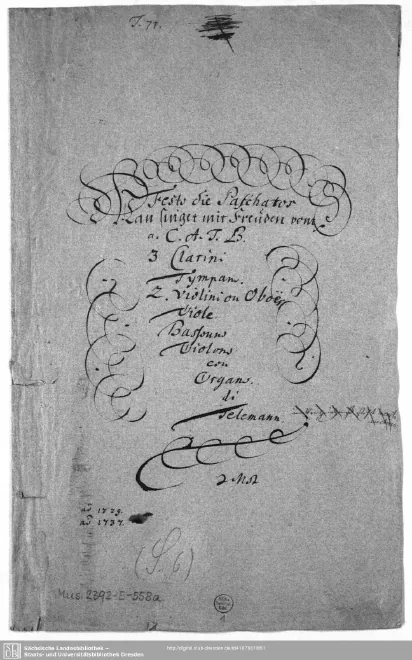 T. 71.
Festo die Paschatos
Man singet mit Freuden vom
a. C. A. T. B.
3 Clarini
Tympan.
2. Violini ou Oboe
Viole
Bassono
Violono
con
Organ.
di
Telemann.
ad 1729.
ad 1737.
(S. 6)
Mus. 2392-E-558a
Sächsische Landesbibliothek –
Staats- und Universitätsbibliothek Dresden